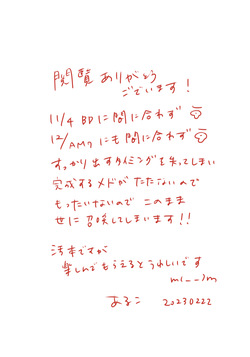 閲覧ありがとう
ございます!
11/4 BDに間に合わず
12/AM7にも間に合わず
すっかり出すタイミングを失ってしまい
完成するメドがたたないので
もったいないので このまま
せに召喚してしまいます!!
汚本ですが
楽しんでもらえるとうれしいです
m(_ _)m
あるこ 20230222